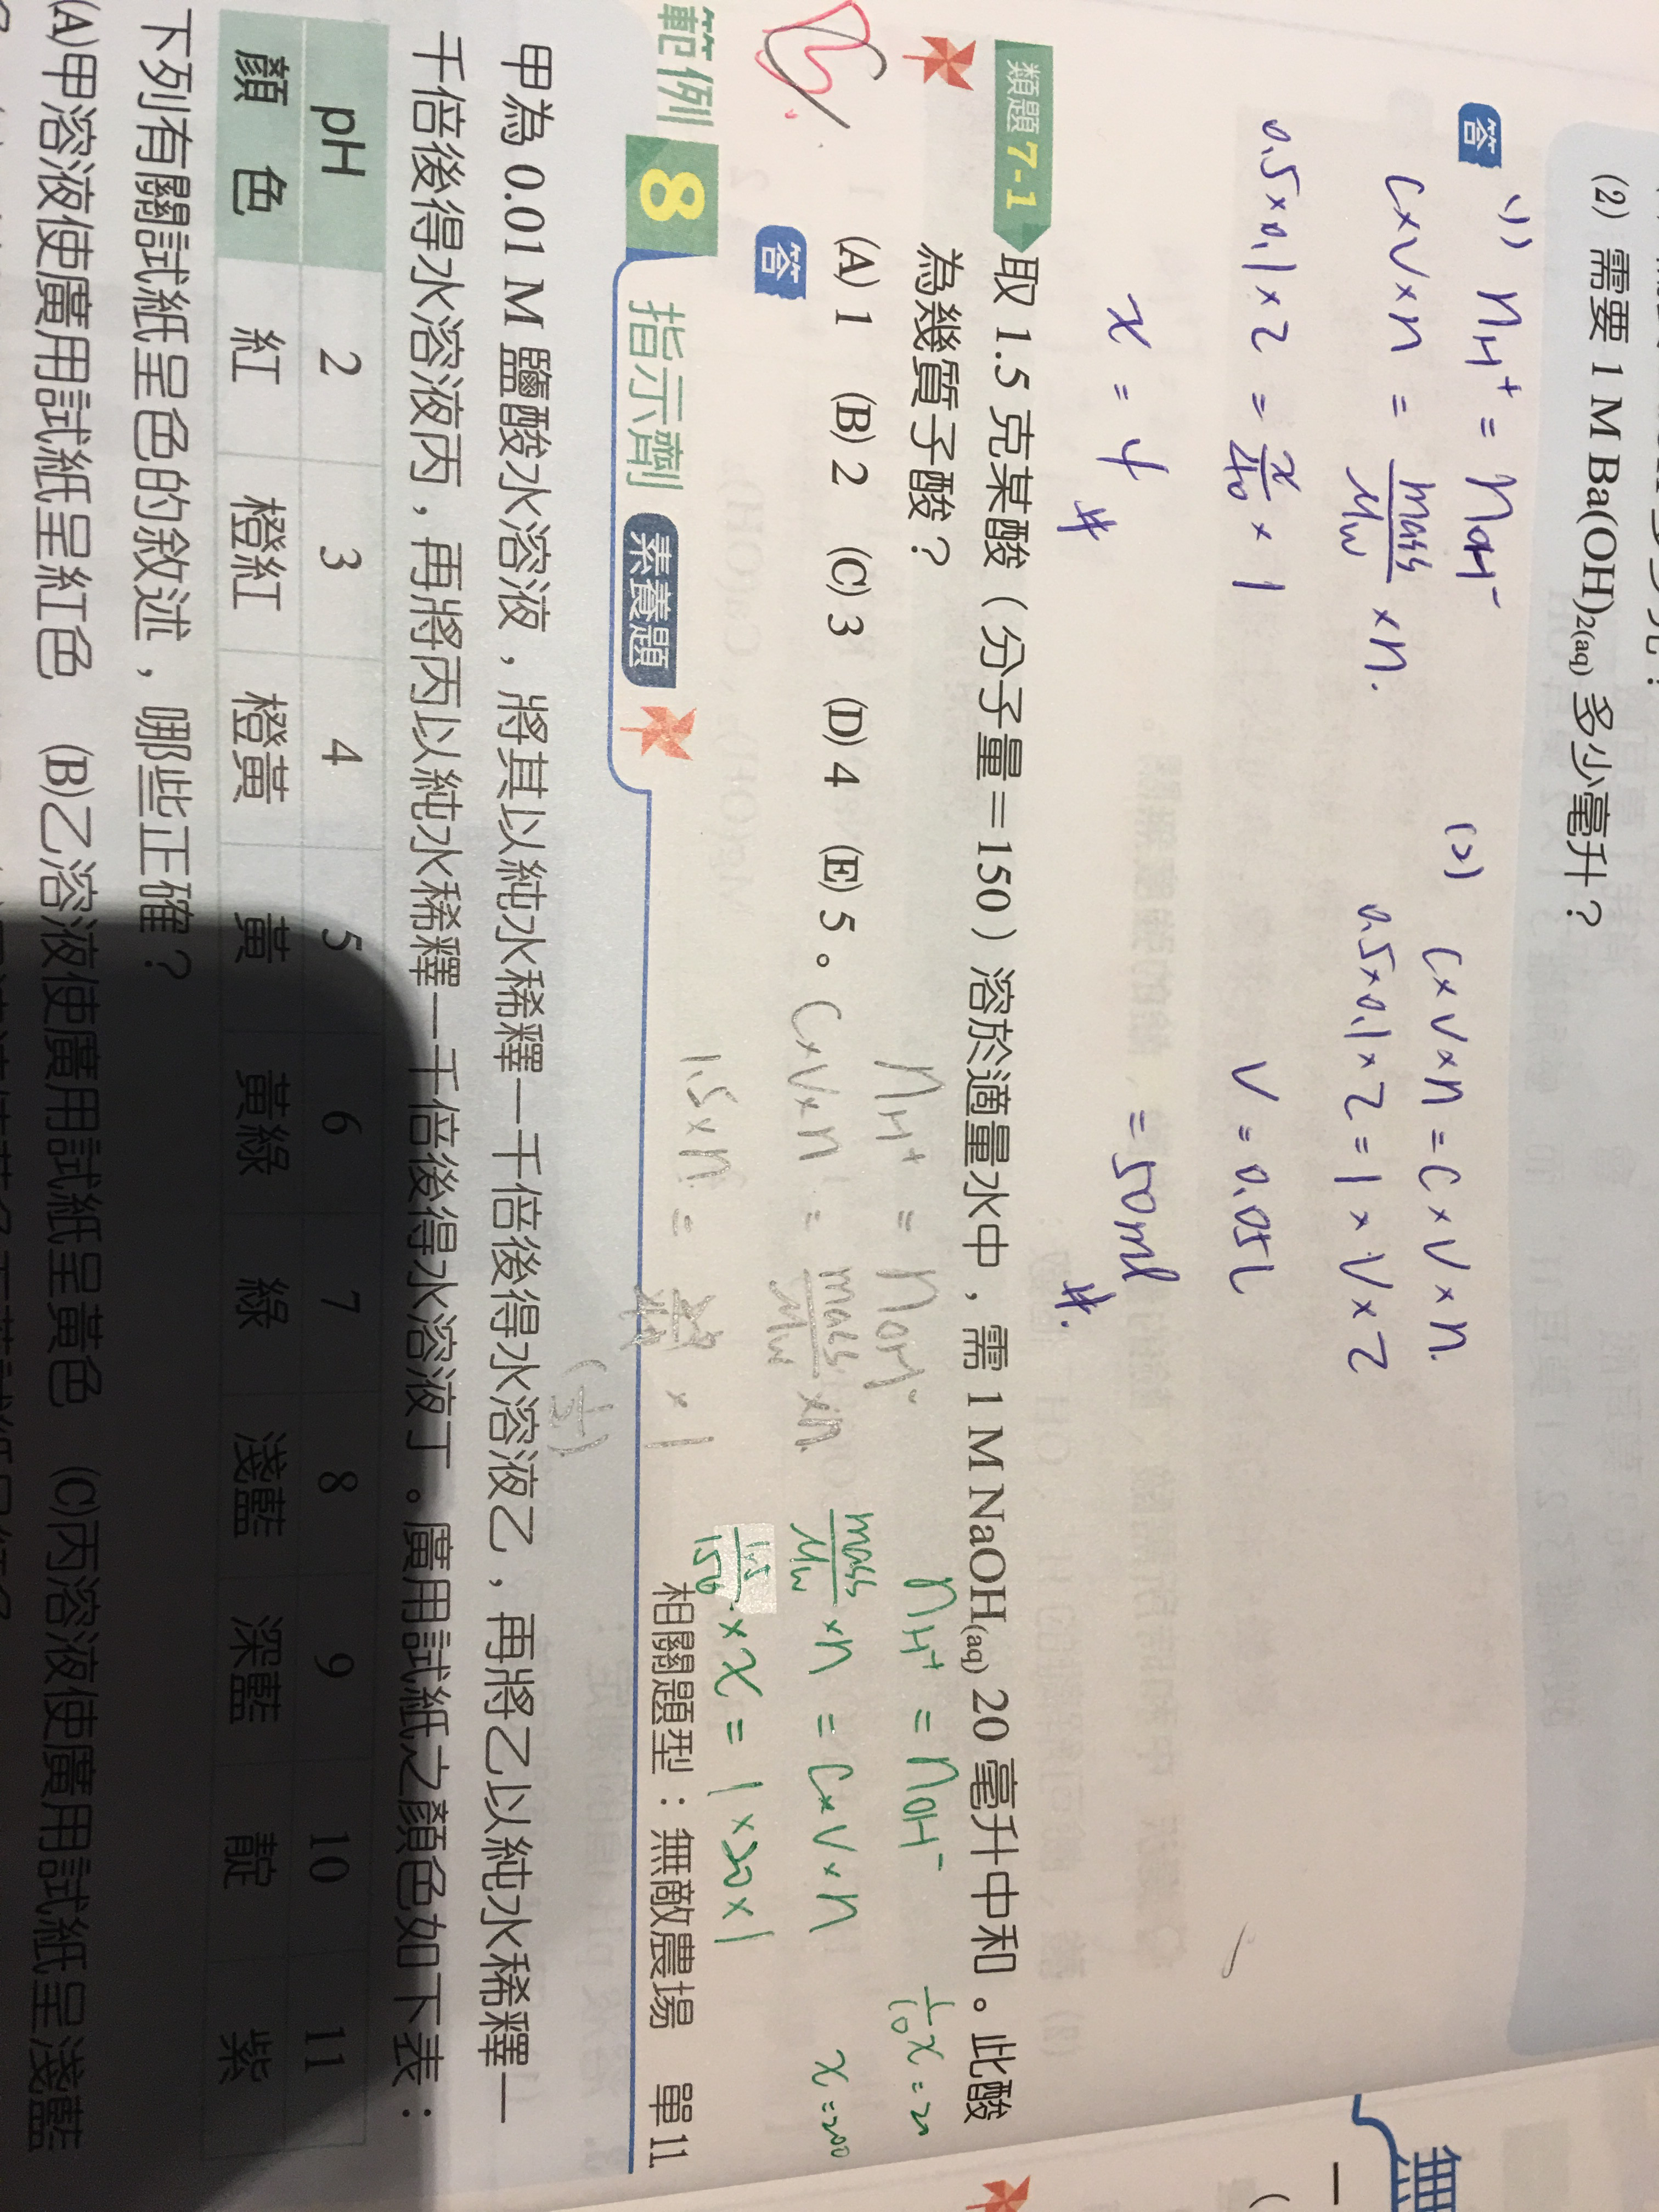 (2) 需要 1 M Ba(OH)₂₍aq₎ 多少毫升？
答
(1) nH⁺ = nOH⁻
C×V×n = mass/Mw ×n.
0.5×0.1×2 = x/40 × 1
x = 4 #
(2) C×V×n = C×V×n.
0.5×0.1×2 = 1×V×2
V = 0.05L
= 50ml #.
類題 7-1 取 1.5 克某酸（分子量＝150）溶於適量水中，需 1 M NaOH₍aq₎ 20 毫升中和。此酸
為幾質子酸？
(A) 1 (B) 2 (C) 3 (D) 4 (E) 5。
答
nH⁺ = nOH⁻
C×V×n = mass/Mw ×n.
1.5×n =
× 1
nH⁺ = nOH⁻
mass/Mw ×n = C×V×n
1.5/150 × x = 1×20×1
1/10 x = 20
x = 200
範例 8 指示劑 素養題
相關題型：無敵農場 單 11.
甲為 0.01 M 鹽酸水溶液，將其以純水稀釋一千倍後得水溶液乙，再將乙以純水稀釋一
千倍後得水溶液丙，再將丙以純水稀釋一千倍後得水溶液丁。廣用試紙之顏色如下表：
pH 2 3 4 5 6 7 8 9 10 11
顏 色 紅 橙紅 橙黃 黃 黃綠 綠 淺藍 深藍 靛 紫
下列有關試紙呈色的敘述，哪些正確？
(A)甲溶液使廣用試紙呈紅色 (B)乙溶液使廣用試紙呈黃色 (C)丙溶液使廣用試紙呈淺藍
無